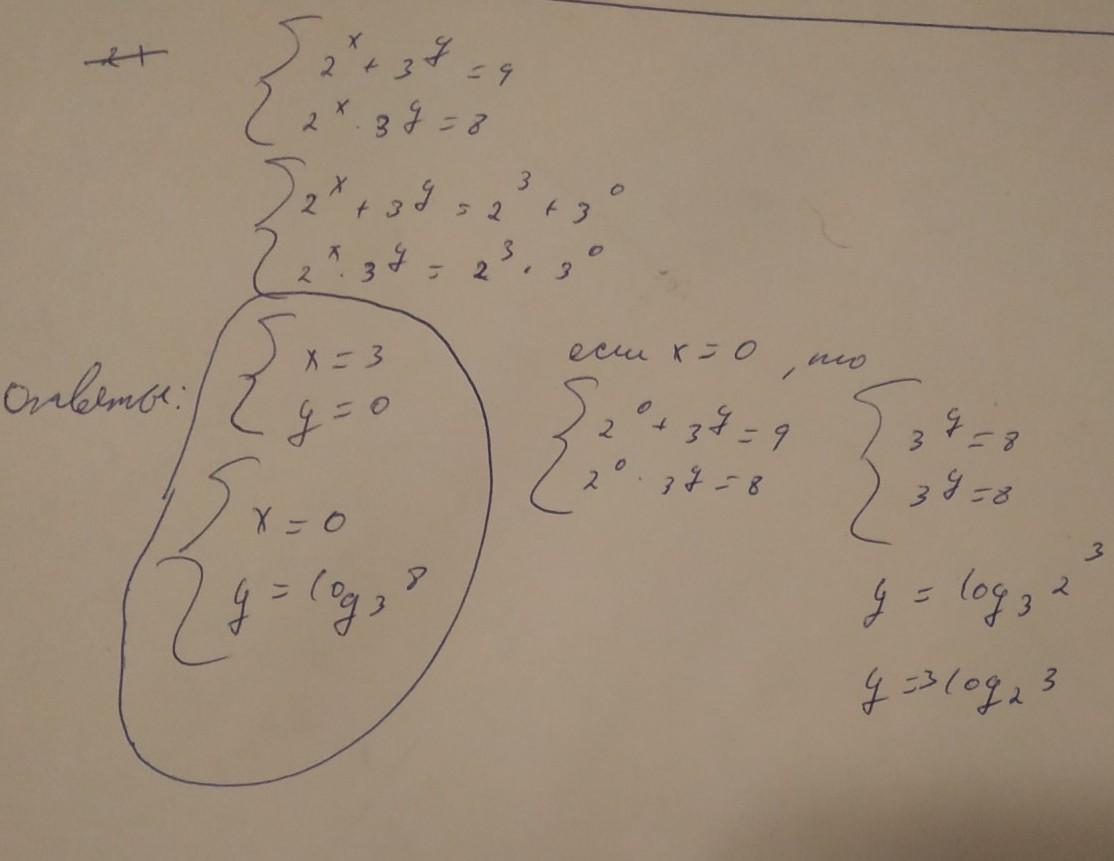 2^x + 3^y = 9
2^x · 3^y = 8
2^x + 3^y = 2^3 + 3^0
2^x · 3^y = 2^3 · 3^0
Ответы:
x = 3
y = 0
x = 0
y = log_3 8
если x = 0, то
2^0 + 3^y = 9
2^0 · 3^y = 8
3^y = 8
3^y = 8
y = log_3 2^3
y = 3 log_2 3